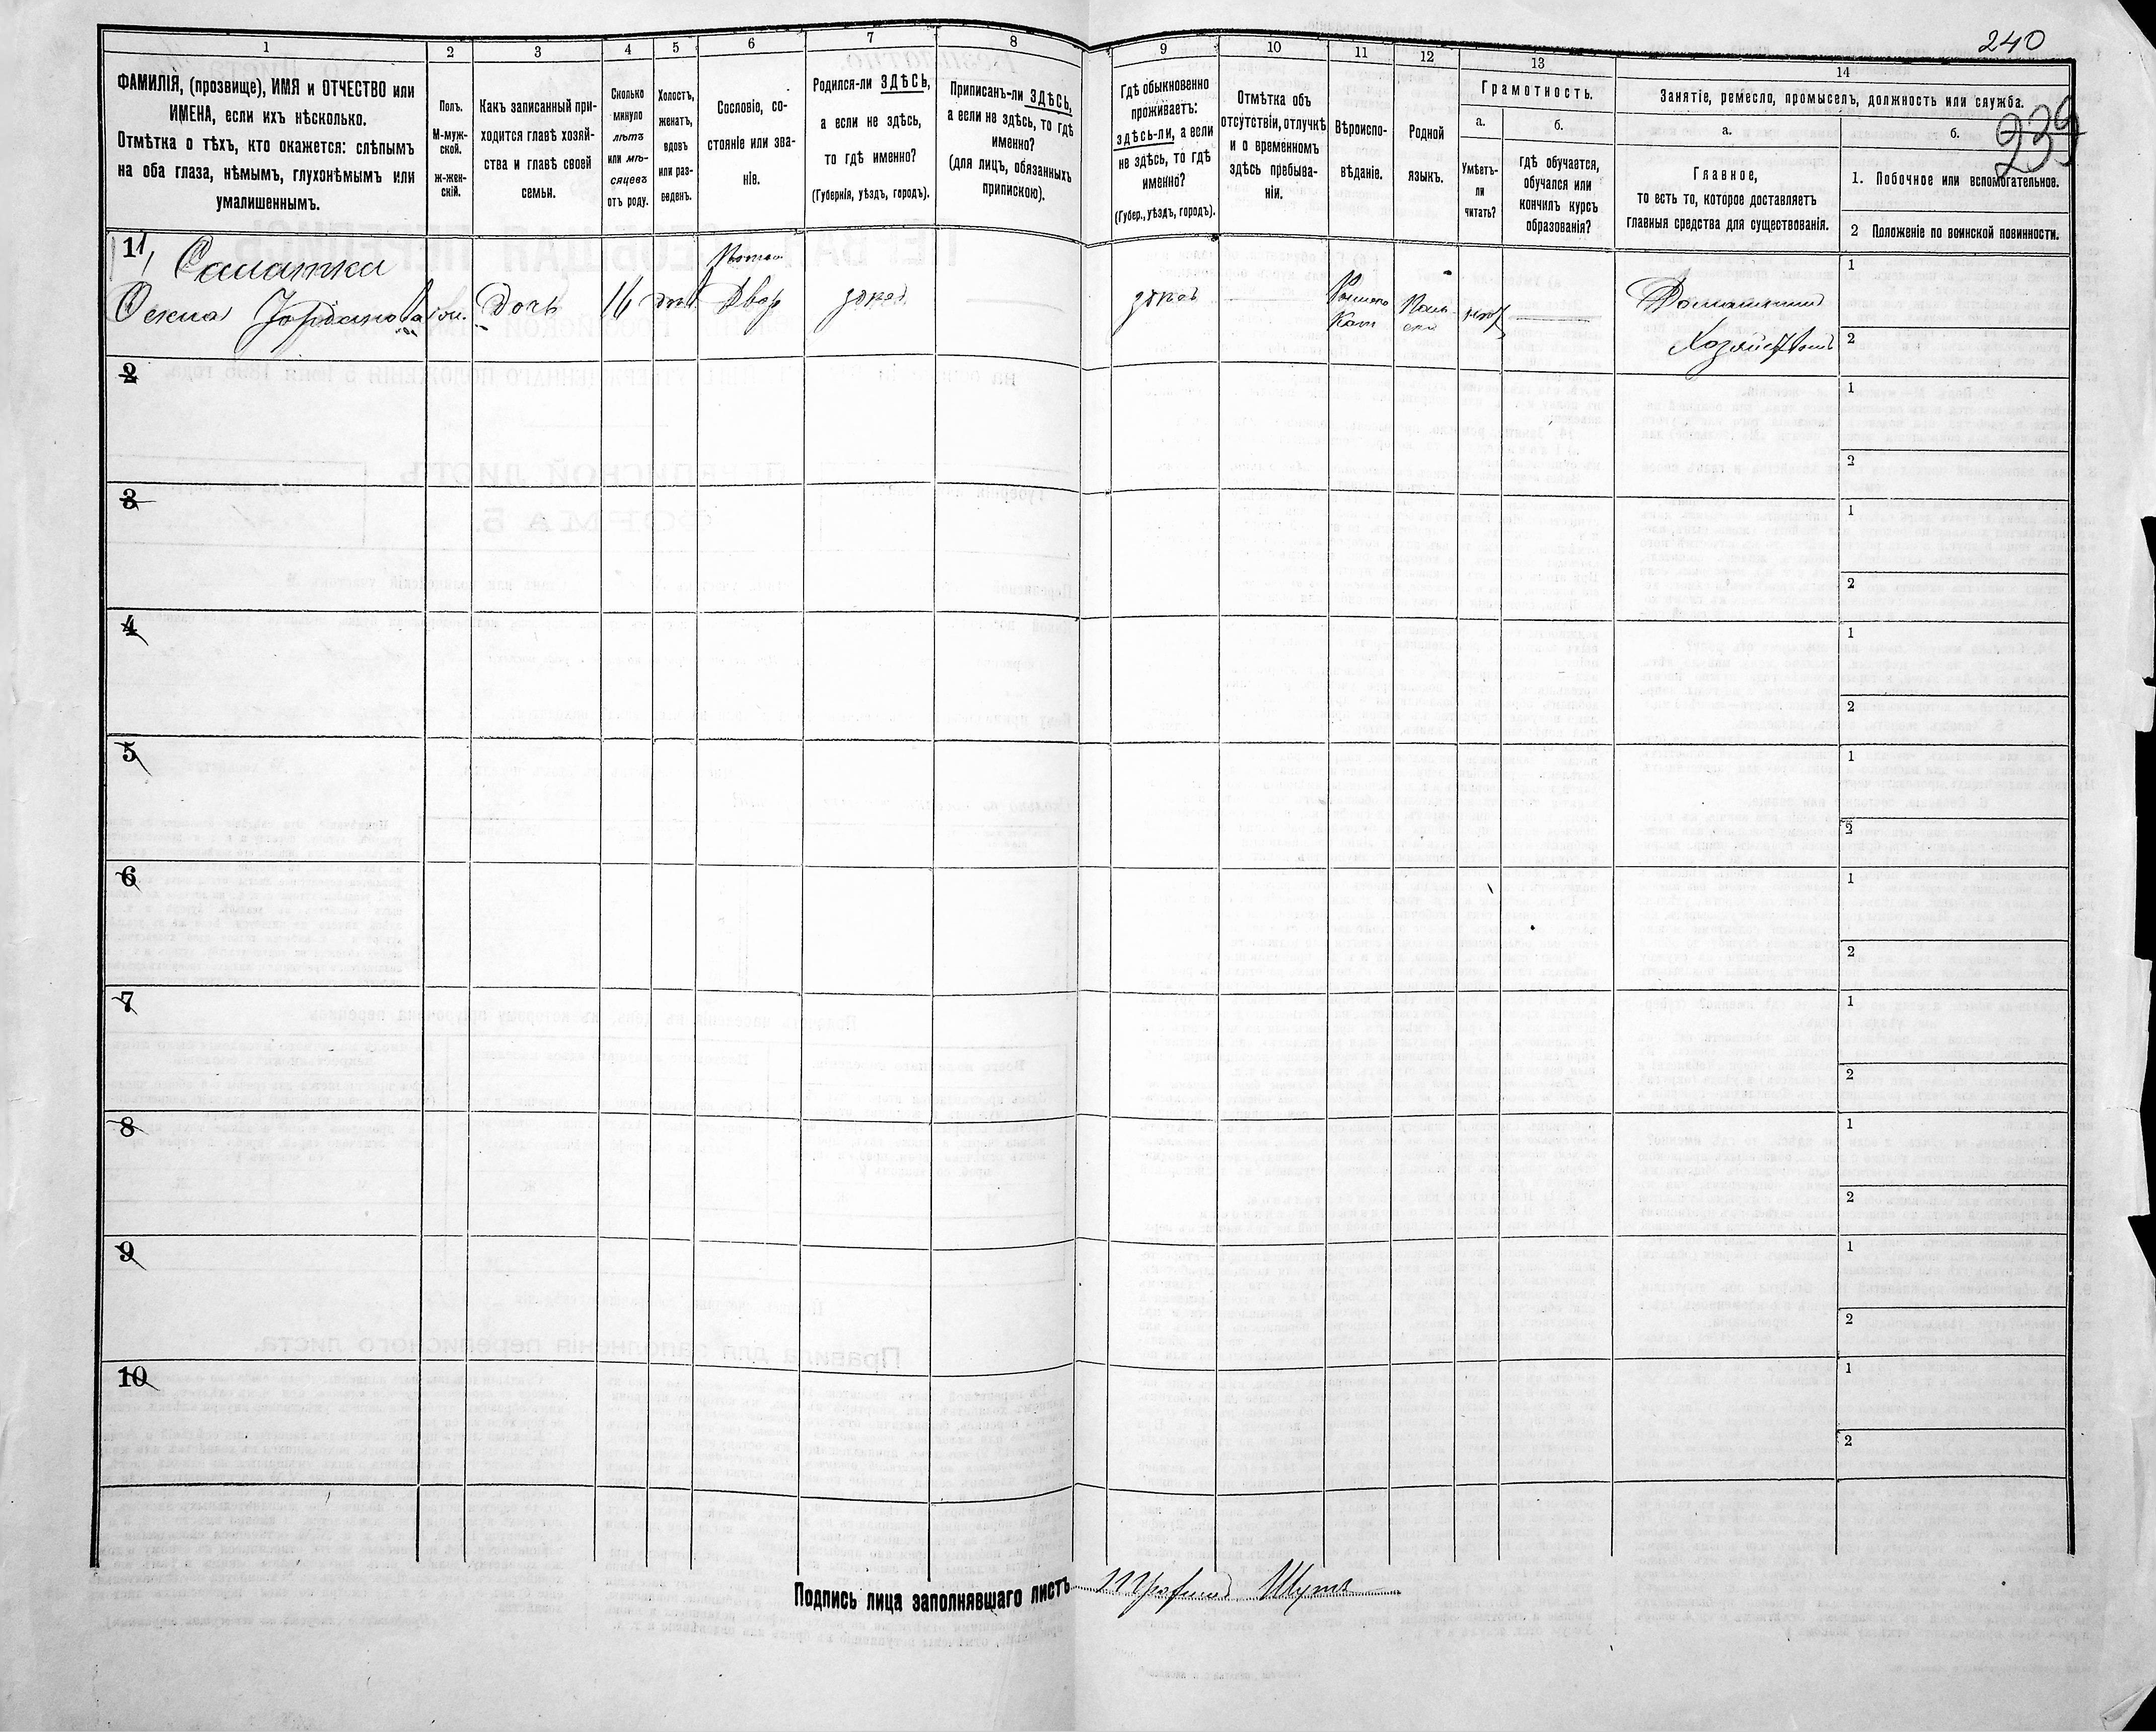 240
239
1
2
3
4
5
6
7
8
9
10
11
12
13
14
ФАМИЛІЯ, (прозвище), ИМЯ и ОТЧЕСТВО или
ИМЕНА, если ихъ нѣсколько.
Отмѣтка о тѣхъ, кто окажется: слѣпымъ
на оба глаза, нѣмымъ, глухонѣмымъ или
умалишеннымъ.
Полъ.
М-муж-
ской.
ж-жен-
скій.
Какъ записанный при-
ходится главѣ хозяй-
ства и главѣ своей
семьи.
Сколько
минуло
лѣтъ
или мѣ-
сяцевъ
отъ роду.
Холостъ,
женатъ,
вдовъ
или раз-
веденъ.
Сословіо, со-
стояніе или зва-
ніе.
Родился-ли ЗДѢСЬ,
а если не здѣсь,
то гдѣ именно?
(Губернія, уѣздъ, городъ).
Приписанъ-ли ЗДѢСЬ,
а если не здѣсь, то гдѣ
именно?
(для лицъ, обязанныхъ
припискою).
Гдѣ обыкновенно
проживаетъ:
здѣсь-ли, а если
не здѣсь, то гдѣ
именно?
(Губер., уѣздъ, городъ).
Отмѣтка объ
отсутствіи, отлучкѣ
и о временномъ
здѣсь пребыва-
ніи.
Вѣроиспо-
вѣданіе.
Родной
языкъ.
Грамотность.
а.
б.
Умѣетъ-
ли
читать?
гдѣ обучается,
обучался или
кончилъ курсъ
образованія?
Занятіе, ремесло, промыселъ, должность или служба.
а.
б.
Главное,
то есть то, которое доставляетъ
главныя средства для существованія.
1. Побочное или вспомогательное.
2 Положеніе по воинской повинности.
11
дочь
16
Двор
здѣсь
здѣсь
Римско
Кат
Поль-
ски
нѣтъ
Домашнимъ
Хозяйствомъ
1
2
2
1
2
3
1
2
4
1
2
5
1
2
6
1
2
7
1
2
8
1
2
9
1
2
10
1
2
Подпись лица заполнявшаго листъ